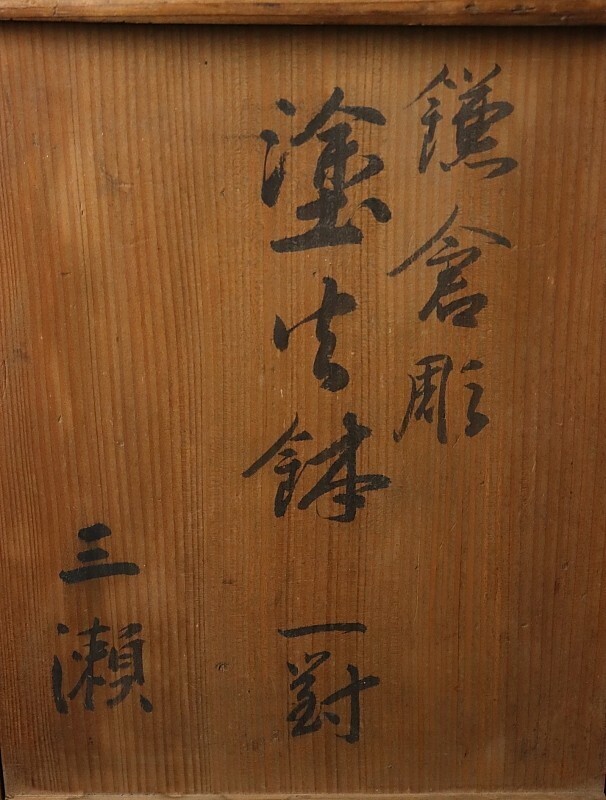 鎌倉彫
塗火鉢 一對
三瀬